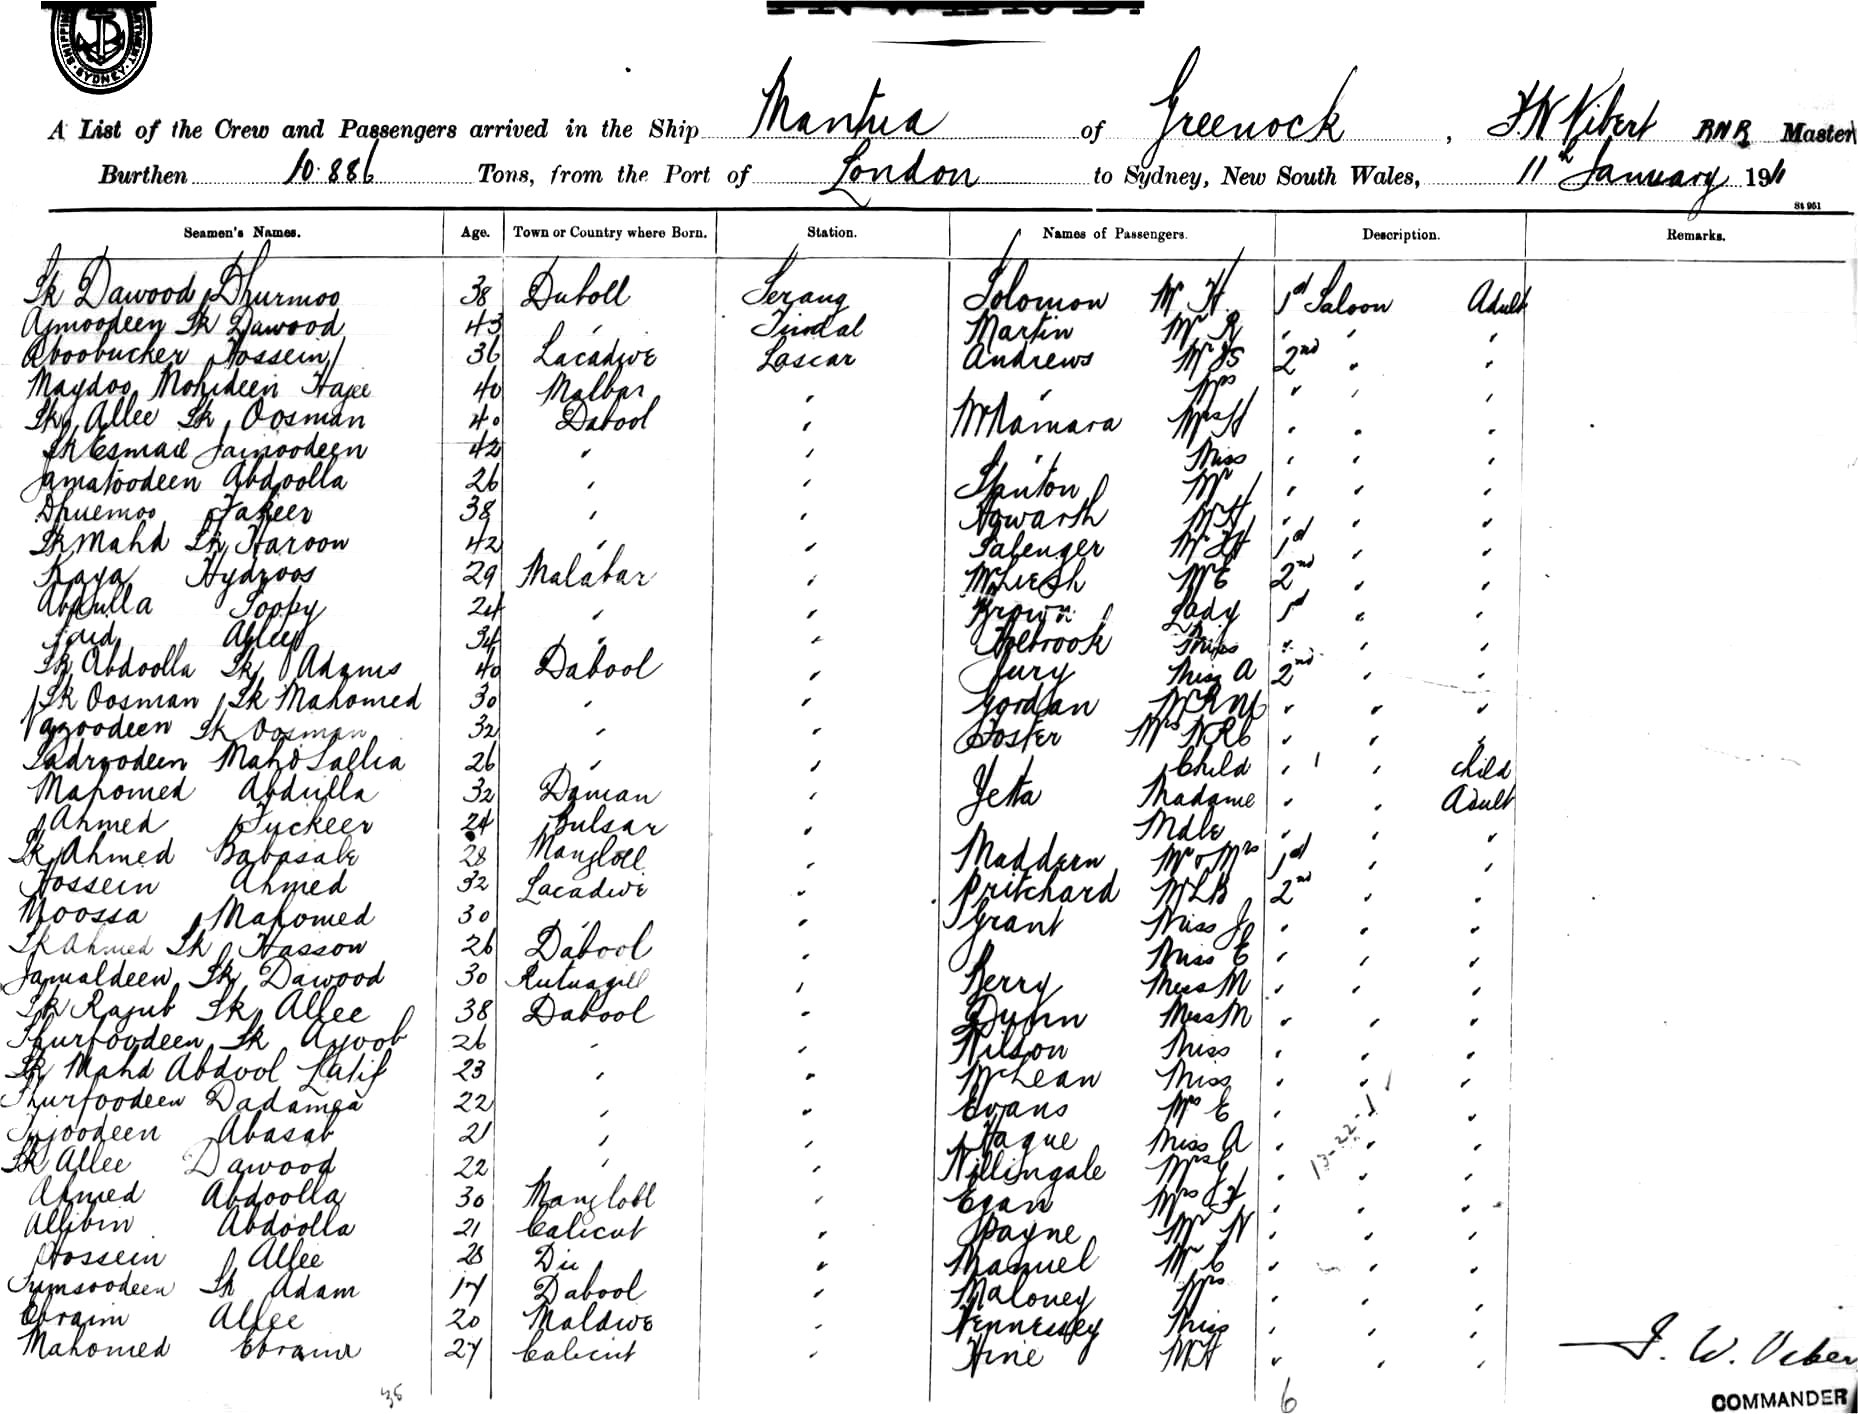 SYDNEY
A List of the Crew and Passengers arrived in the Ship Mantua of Greenock, F.W Vibert RNR Master
Burthen 10.886 Tons, from the Port of London to Sydney, New South Wales, 11th January 1911
St 951
Seamen's Names. Age. Town or Country where Born. Station. Names of Passengers. Description. Remarks.
Sk Dawood Dhurmoo 38 Duboll Serang Solomon Mr H. 1st Saloon Adult
Ajmoodeen Sk Dawood 43 " Tindal Martin Mr R " " "
Aboobucker Hossein 36 Lacadive Lascar Andrews Mr JS 2nd " "
Maydoo Mohideen Hajee 40 Malbar " " Mrs " " "
Sk Allee Sk Oosman 40 Dabool " McNamara Mrs H " " "
Sk Esmail Jainoodeen 42 " " " Miss " " "
Jamaloodeen Abdoolla 26 " " Stanton Mr " " "
Dhuemoo Fakeer 38 " " Howarth Mr H " " "
Sk Mahd Sk Haroon 42 " " Salenger Mr 1st " "
Kaya Hydroos 29 Malabar " McLeish Mr E 2nd " "
Abdulla Soopy 24 " " Brown Lady 1st " "
Said Allee 34 " " Holbrook Miss " " "
Sk Abdoolla Sk Adams 40 Dabool " Jury Miss A 2nd " "
Sk Oosman Sk Mahomed 30 " " Gordan Mr " " "
Sk Oosman 32 " " Foster Mrs " " "
Sadroodeen Mahd Sallia 26 " " Child " " " child
Mahomed Abdulla 32 Daman " Yetta Madame " " Adult
Ahmed Fuckeer 24 Bulsar " Mdle " " "
Sk Ahmed Babasab 28 Manglore " Maddern Mr & Mrs 1st " "
Hossein Ahmed 32 Lacadive " Pritchard Mr LB 2nd " "
Moossa Mahomed 30 " " Grant Miss J " " "
Sk Ahmed Sk Hasson 26 Dabool " Miss E " " "
Jamaldeen Sk Dawood 30 Rutnagill " Berry Miss M " " "
Sk Rajub Sk Allee 38 Dabool " Dunn Miss M " " "
Shurfoodeen Sk Ayoob 26 " " Wilson Miss " " "
Sk Mahd Abdool Latif 23 " " McLean Miss " " "
Shurfoodeen Dadamea 22 " " Evans Mrs E " "
Abasab 21 " " Hague Miss A " " "
Sk Allee Dawood 22 " " Nillingale Mrs " " "
13-22-1
Ahmed Abdoolla 30 Manglore " Egan Mrs " " "
Allibin Abdoolla 21 Calicut " Payne Mr W " " "
Hossein Allee 28 Diu " Manuel Mr C " " "
Sumsoodeen Sk Adam 17 Dabool " Maloney Mrs " " "
Ebraim Allee 20 Maldive " Hennessey Miss " " "
Mahomed Ebraim 27 Calicut " Hine Mr H " " "
35 6
F. W. Viber
COMMANDER